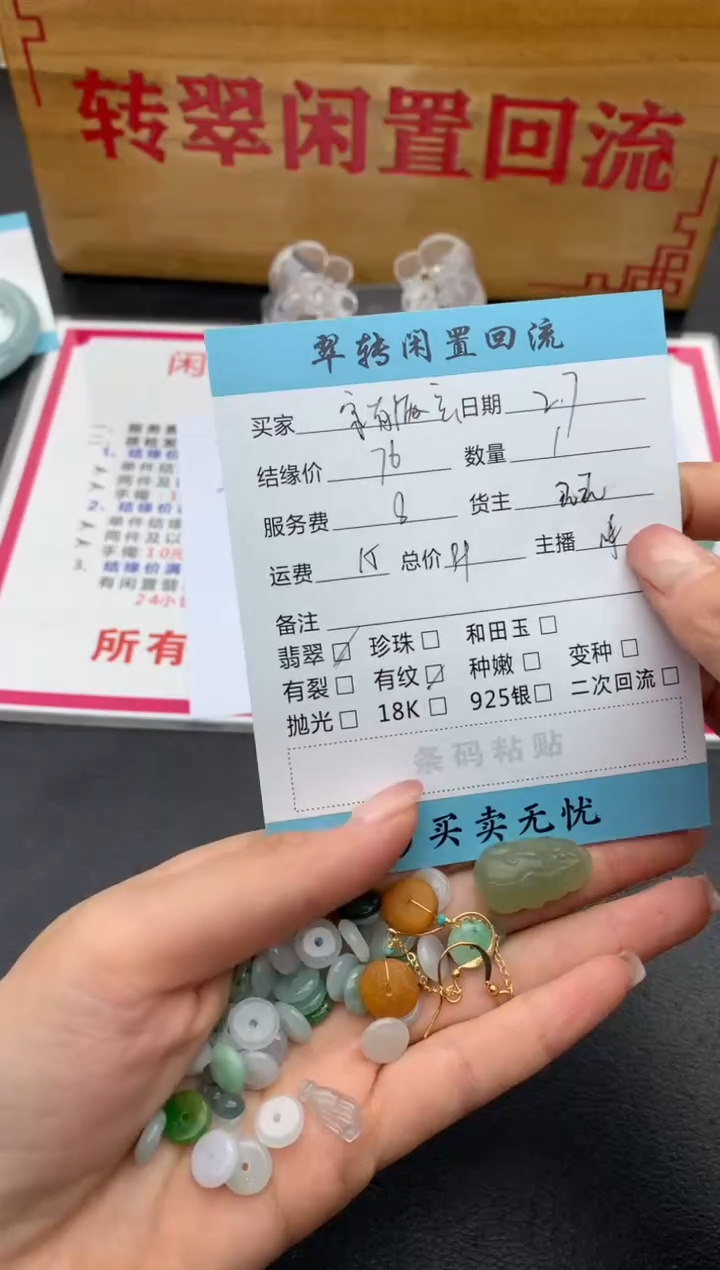 转翠闲置回流
翠转闲置回流
买家 日期 2.7
结缘价 76 数量 1
服务费 8 货主
运费 15 总价 主播
备注
翡翠☑ 珍珠☐ 和田玉☐
有裂☐ 有纹☑ 种嫩☐ 变种☐
抛光☐ 18K☐ 925银☐ 二次回流☐
条码粘贴
买卖无忧
闲
1、结缘价
单件结
两件及以
手镯
2、结缘价
单件结缘
两件及以
手镯10元
3. 结缘价满
有闲置翡
24小
所有